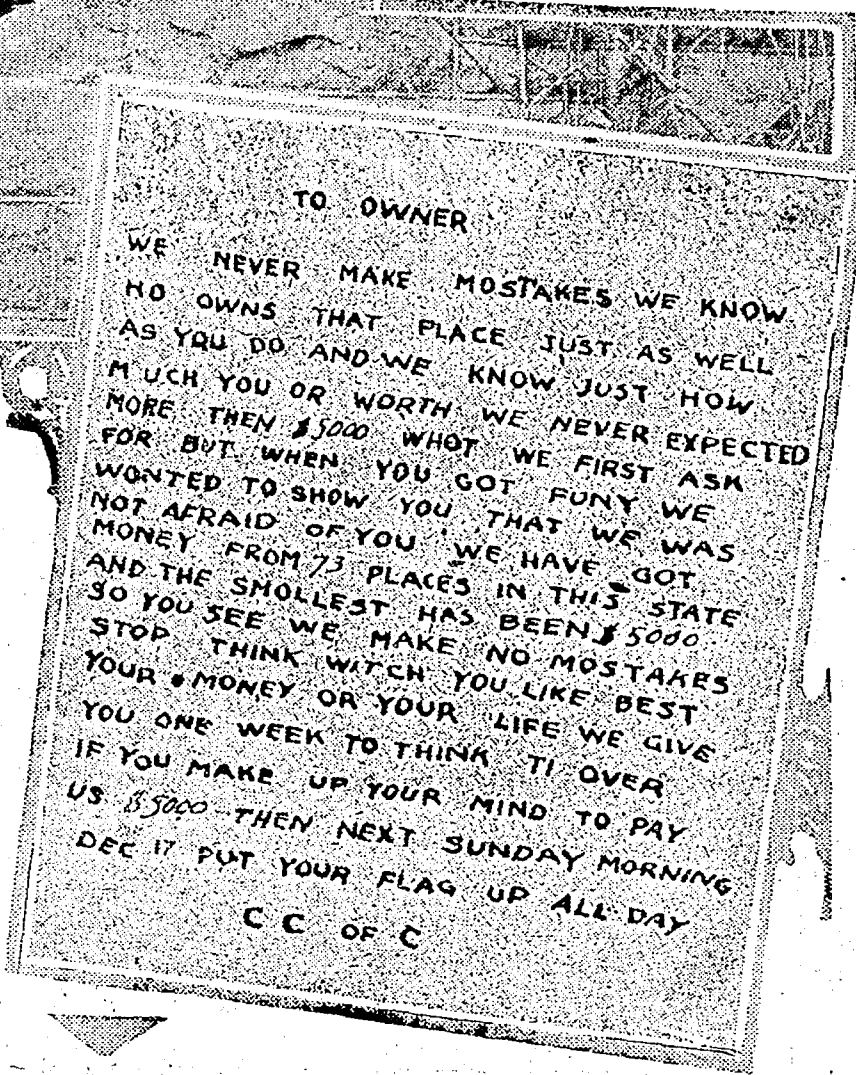 TO OWNER
WE NEVER MAKE MOSTAKES WE KNOW
HO OWNS THAT PLACE JUST AS WELL
AS YOU DO AND WE KNOW JUST HOW
MUCH YOU OR WORTH WE NEVER EXPECTED
MORE THEN $5000 WHOT WE FIRST ASK
FOR BUT WHEN YOU GOT FUNY WE
WONTED TO SHOW YOU THAT WE WAS
NOT AFRAID OF YOU WE HAVE GOT
MONEY FROM 73 PLACES IN THIS STATE
AND THE SMOLLEST HAS BEEN $5000
SO YOU SEE WE MAKE NO MOSTAKES
STOP THINK WITCH YOU LIKE BEST
YOUR MONEY OR YOUR LIFE WE GIVE
YOU ONE WEEK TO THINK TI OVER
IF YOU MAKE UP YOUR MIND TO PAY
US $5000 THEN NEXT SUNDAY MORNING
DEC 17 PUT YOUR FLAG UP ALL DAY
C C OF C